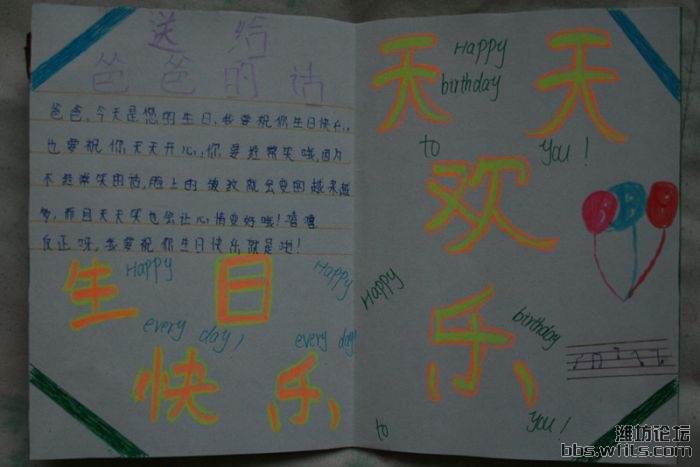 送给
爸爸的话
爸爸,今天是您的生日,我要祝你生日快乐,
也要祝你天天开心,你要经常笑哦,因为
不经常笑的话,脸上的皱纹就会变的越来越
多,而且天天笑也会让心情变好哦!嘻嘻
反正呀,我要祝你生日快乐就是啦!
生日
快乐
Happy
every day!
Happy
every day!
天天
欢
乐
Happy
birthday
to
you!
Happy
birthday
to
you!
潍坊论坛
bbs.wfits.com